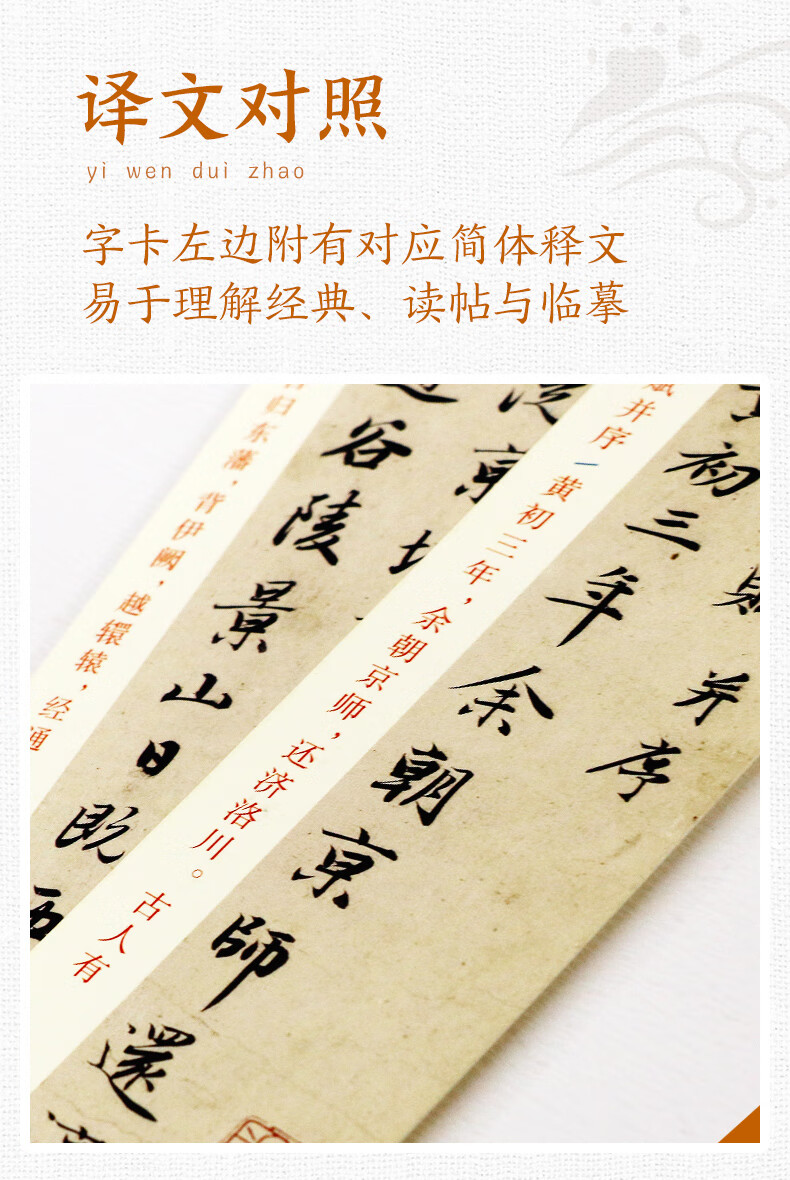 译文对照
yì wen duì zhao
字卡左边附有对应简体释文
易于理解经典、读帖与临摹
并序
初三年余朝京師還
赋并序 黄初三年，余朝京师，还济洛川。古人有
谷陵景山日既西
归东藩，背伊阙，越轘辕，经通